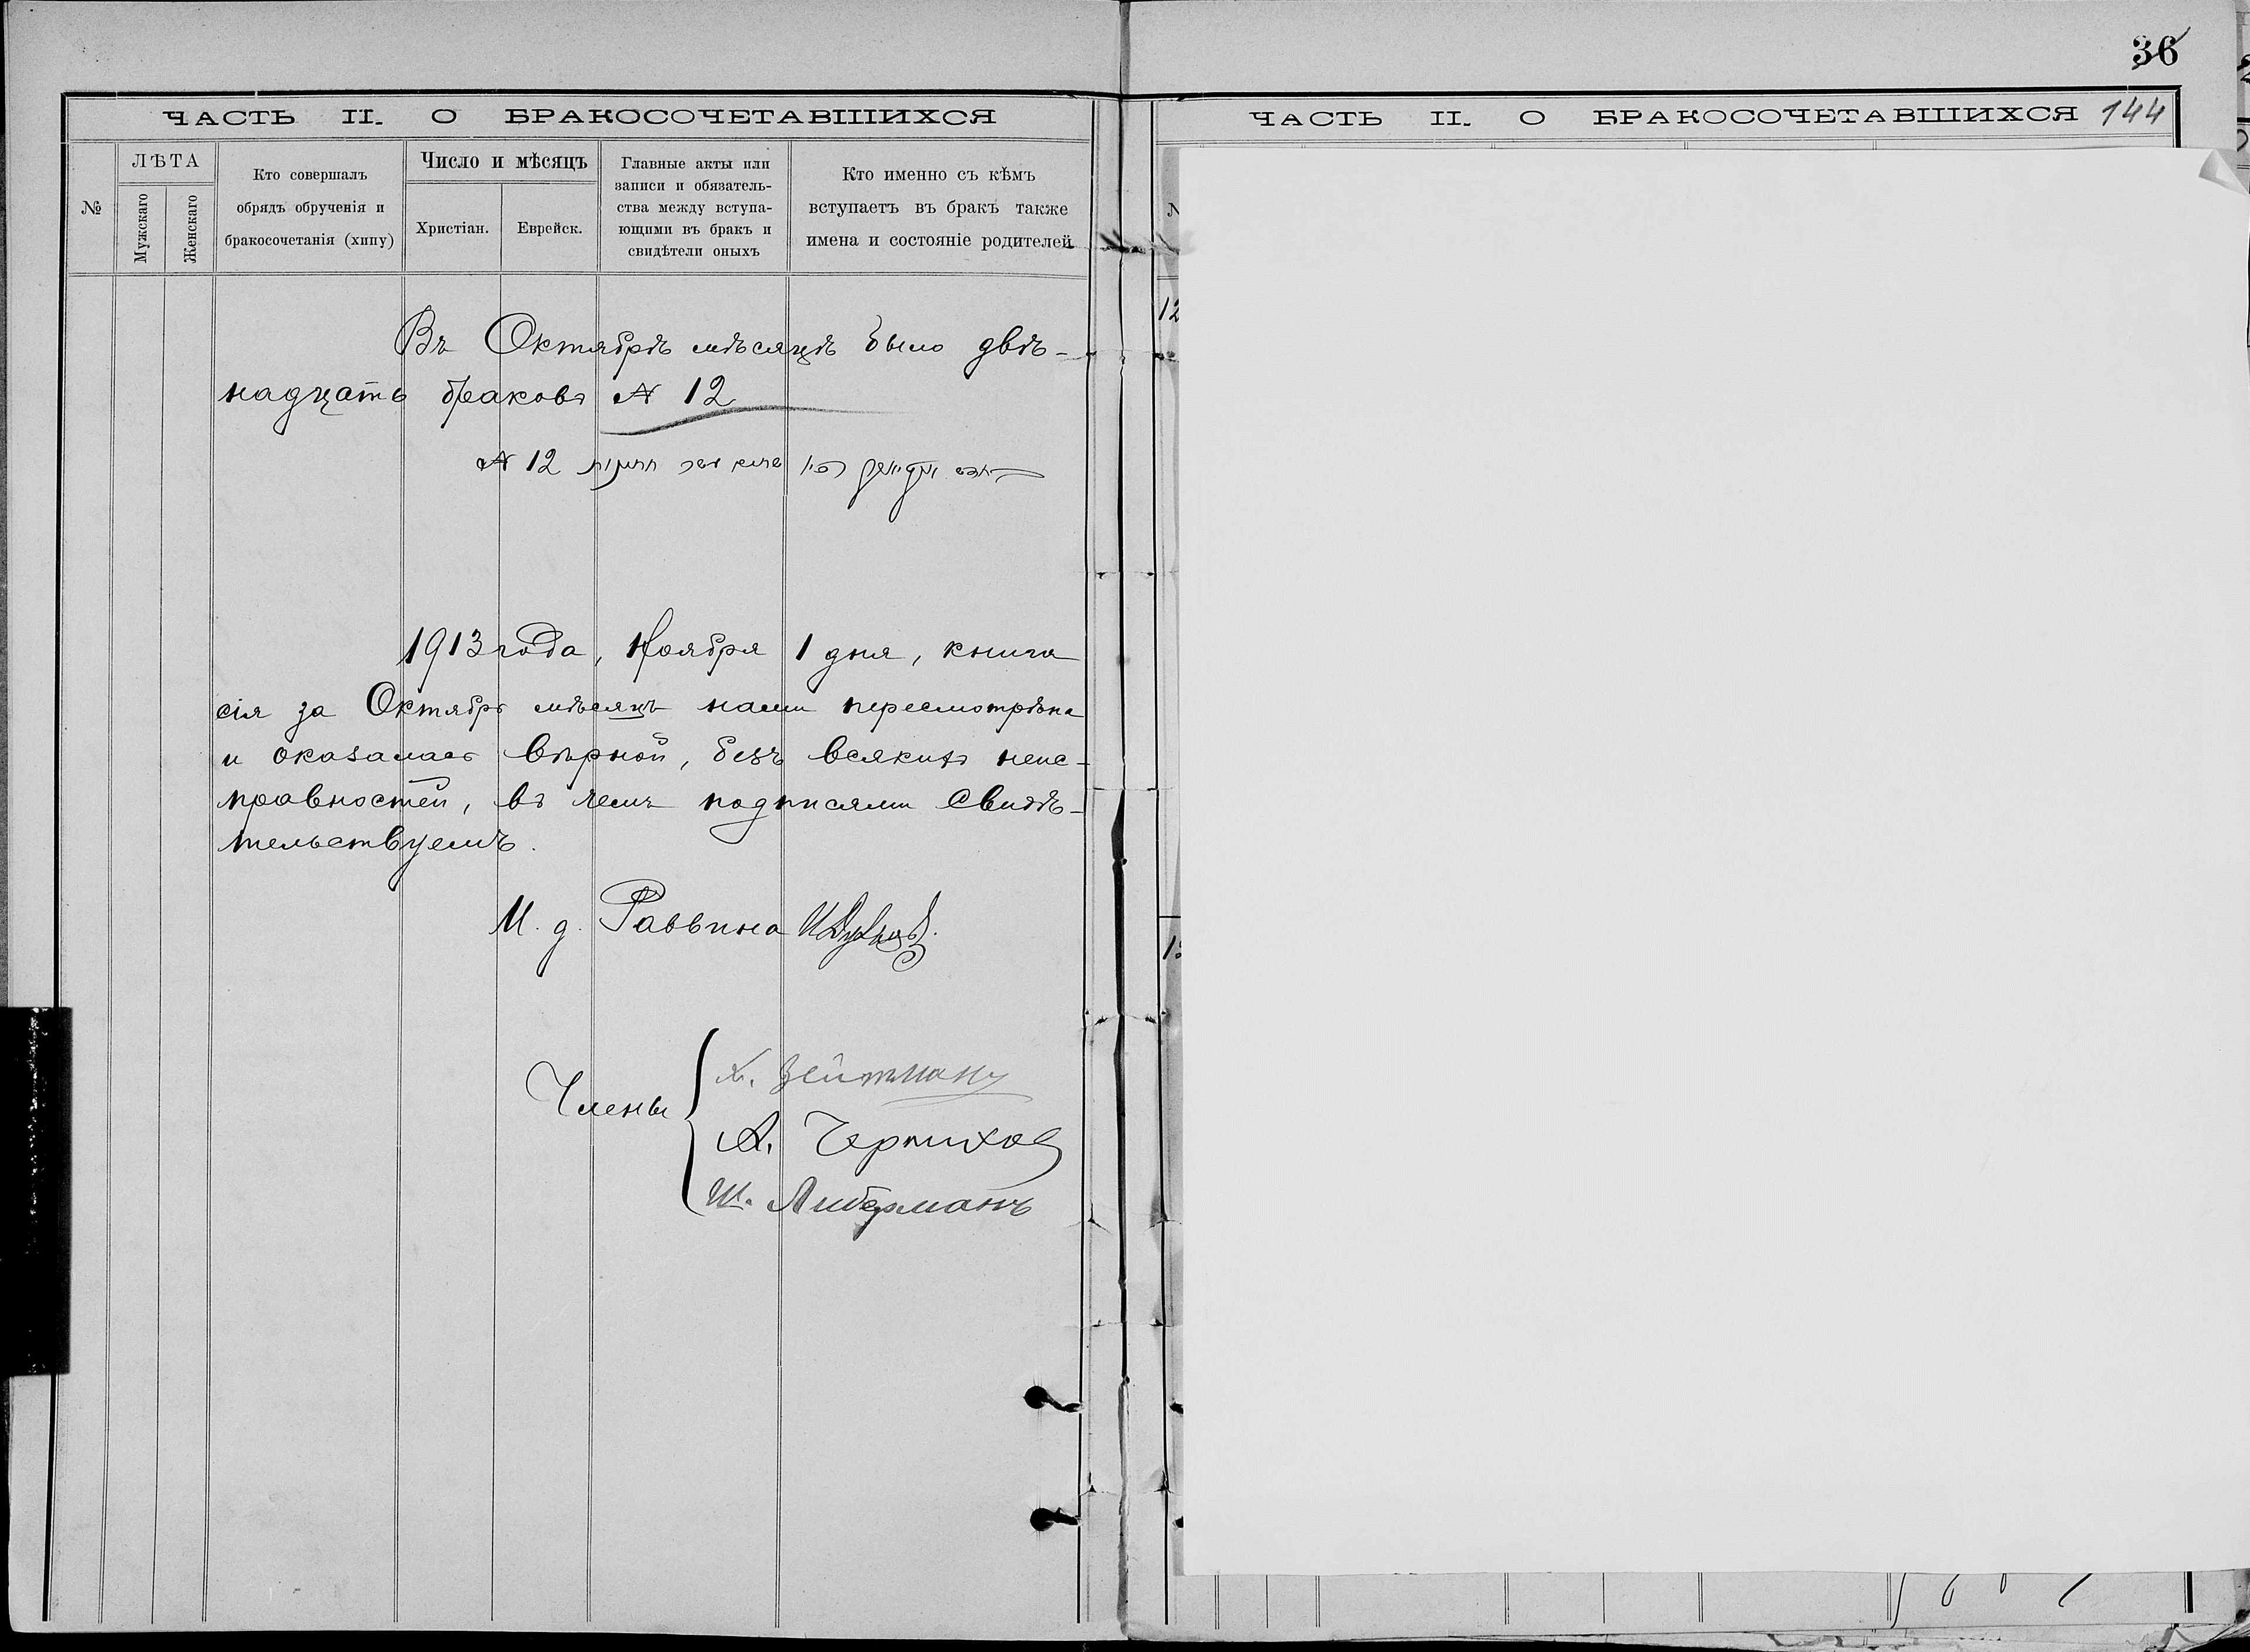 36
ЧАСТЬ II. О БРАКОСОЧЕТАВШИХСЯ
№
ЛѢТА
Мужскаго
Женскаго
Кто совершалъ
обрядъ обрученія и
бракосочетанія (хипу)
Число и мѣсяцъ
Христіан.
Еврейск.
Главные акты или
записи и обязатель-
ства между вступа-
ющими въ бракъ и
свидѣтели оныхъ
Кто именно съ кѣмъ
вступаетъ въ бракъ также
имена и состояніе родителей
Въ Октябрѣ мѣсяцѣ было двѣ-
надцать браковъ № 12
№ 12
1913 года, Ноября 1 дня, книга
сія за Октябрь мѣсяцъ нами пересмотрѣна
и оказалась вѣрной, безъ всякихъ неис-
правностей, въ чемъ подписями свидѣ-
тельствуемъ.
И. д. Раввина
Члены
Х. Зейтманъ
А. Чернихов
Ш. Либерманъ
ЧАСТЬ II. О БРАКОСОЧЕТАВШИХСЯ 144
12